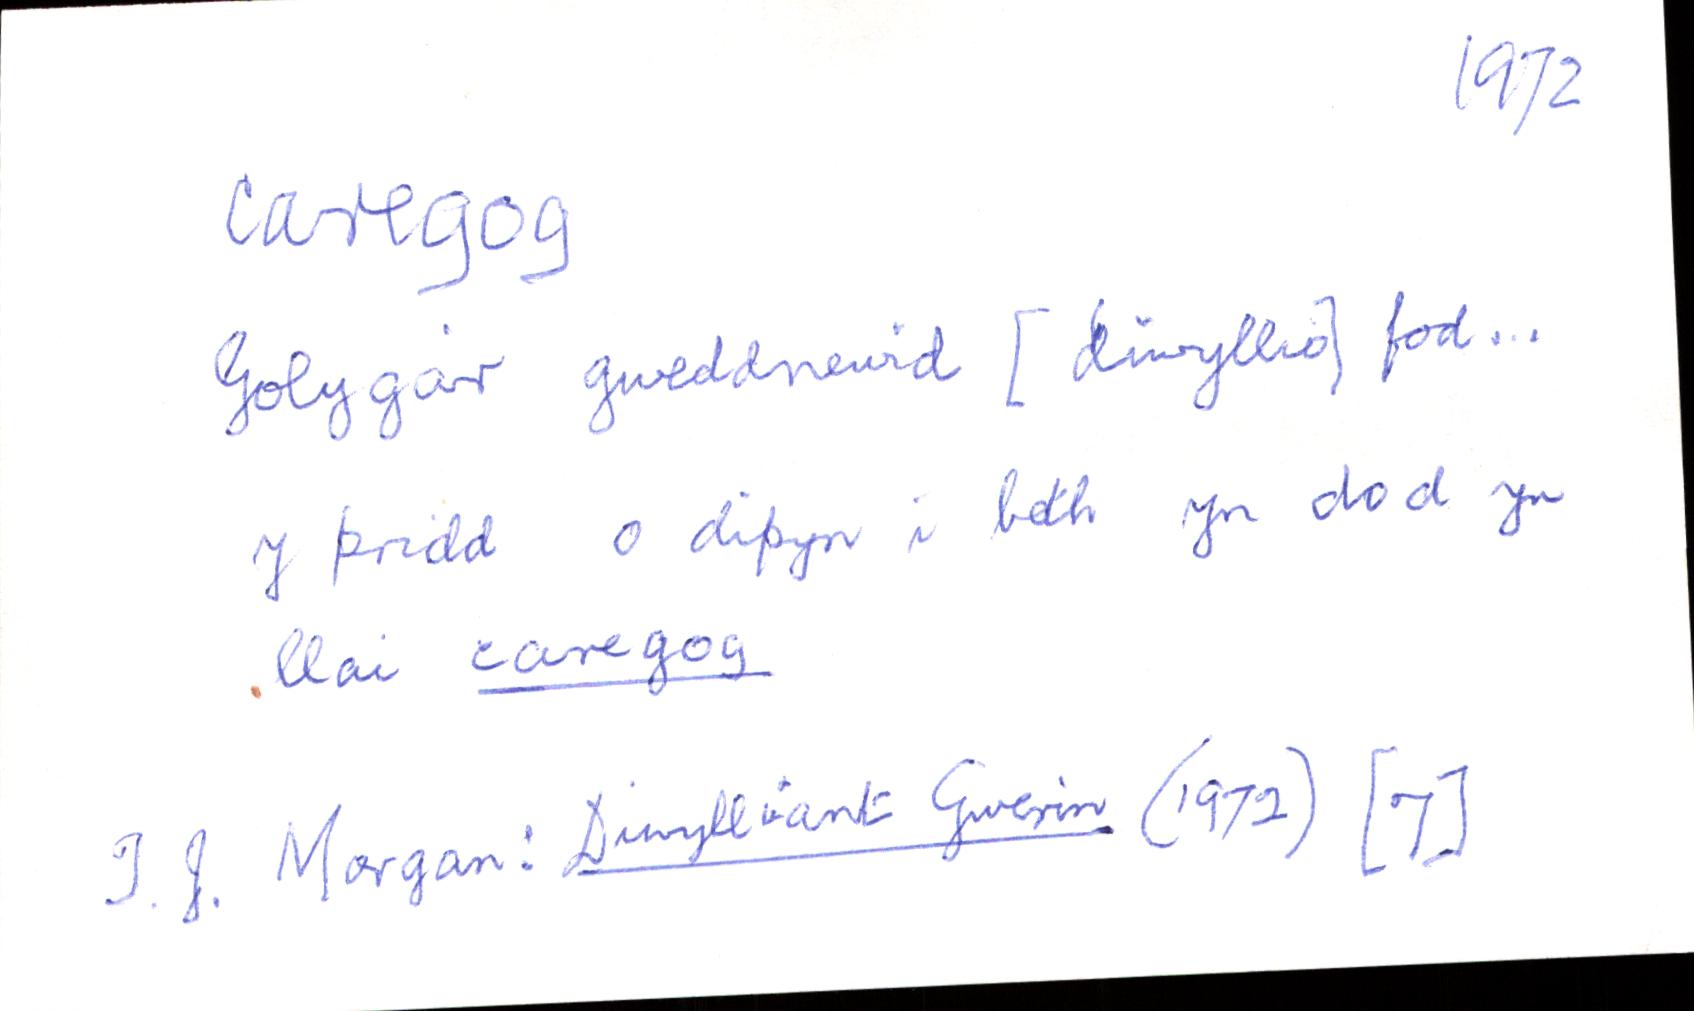 1972
caregog
Golyga'r gweddnewid [diwyllio] fod...
y pridd o dipyn i beth yn dod yn
llai caregog
T. J. Morgan: Diwylliant Gwerin (1972) [7]